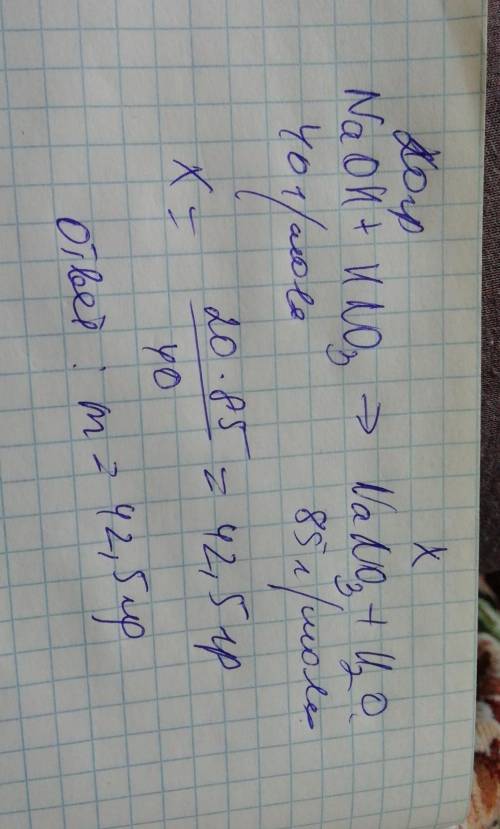 20гр X
NaOH + HNO₃ ⇒ NaNO₃ + H₂O
40 г/моль 85 г/моль
X = 20 · 85 / 40 = 42,5 гр
Ответ : m = 42,5 гр